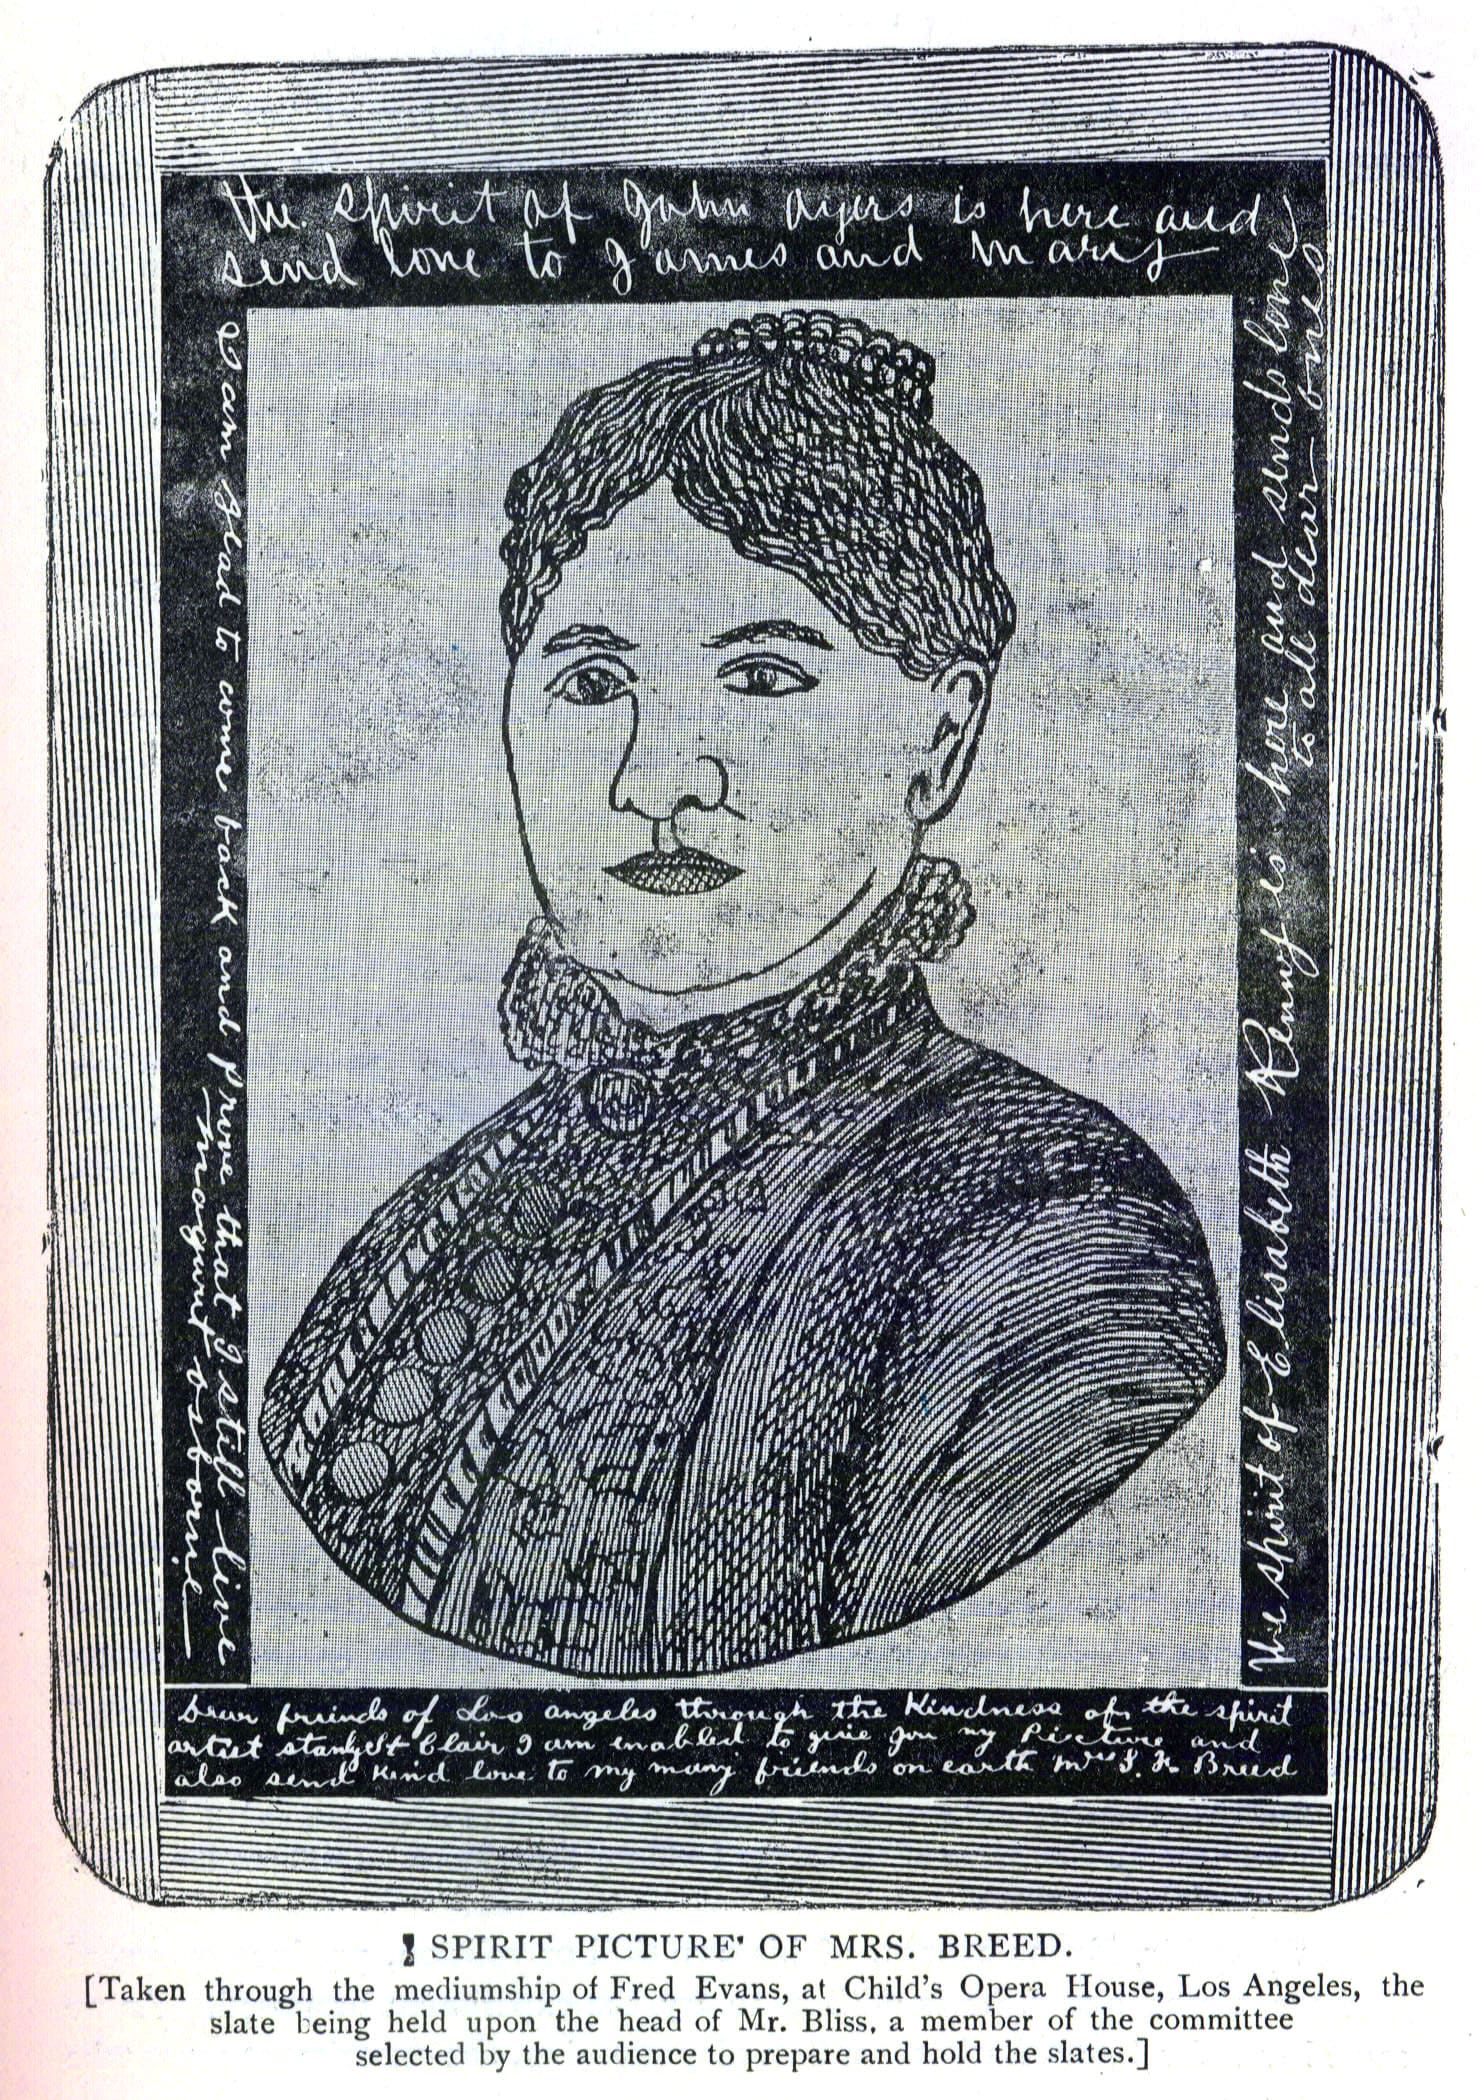 The spirit of John Ayers is here and
send love to James and Mary
I am glad to come back and prove that I still live
Margaret Osborne
The spirit of Elisabeth Kenny is here and sends love
to all dear ones
Dear friends of Los angeles through the Kindness of the spirit
artist stanly St Clair I am enabled to give you my Picture and
also send kind love to my many friends on earth Mrs Breed
SPIRIT PICTURE OF MRS. BREED.
[Taken through the mediumship of Fred Evans, at Child's Opera House, Los Angeles, the
slate being held upon the head of Mr. Bliss, a member of the committee
selected by the audience to prepare and hold the slates.]